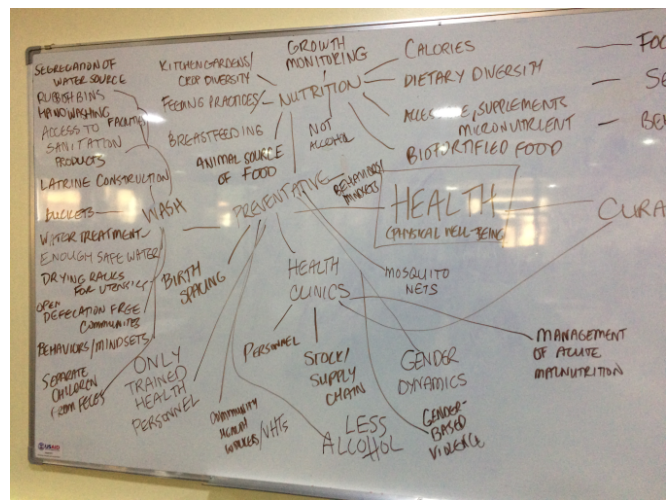 SEGREGATION OF
WATER SOURCE
RUBBISH BINS
HANDWASHING
FACILITIES
ACCESS TO
SANITATION
PRODUCTS
LATRINE CONSTRUCTION
BUCKETS
WATER TREATMENT
ENOUGH SAFE WATER
DRYING RACKS
FOR UTENSILS
OPEN
DEFECATION FREE
COMMUNITIES
BEHAVIORS/MINDSETS
SEPARATE
CHILDREN
FROM FECES
WASH
KITCHEN GARDENS/
CROP DIVERSITY
FEEDING PRACTICES
BREASTFEEDING
ANIMAL SOURCE
OF FOOD
GROWTH
MONITORING
NUTRITION
NOT
ALCOHOL
CALORIES
DIETARY DIVERSITY
SUPPLEMENTS
MICRONUTRIENT
BIOFORTIFIED FOOD
FOO
SE
BEH
PREVENTATIVE
BEHAVIORS/
MINDSETS
HEALTH
(PHYSICAL WELL-BEING)
CURA
BIRTH
SPACING
HEALTH
CLINICS
MOSQUITO
NETS
PERSONNEL
STOCK/
SUPPLY
CHAIN
GENDER
DYNAMICS
MANAGEMENT
OF ACUTE
MALNUTRITION
ONLY
TRAINED
HEALTH
PERSONNEL
COMMUNITY
HEALTH
WORKERS/VHTs
LESS
ALCOHOL
GENDER-
BASED
VIOLENCE
USAID